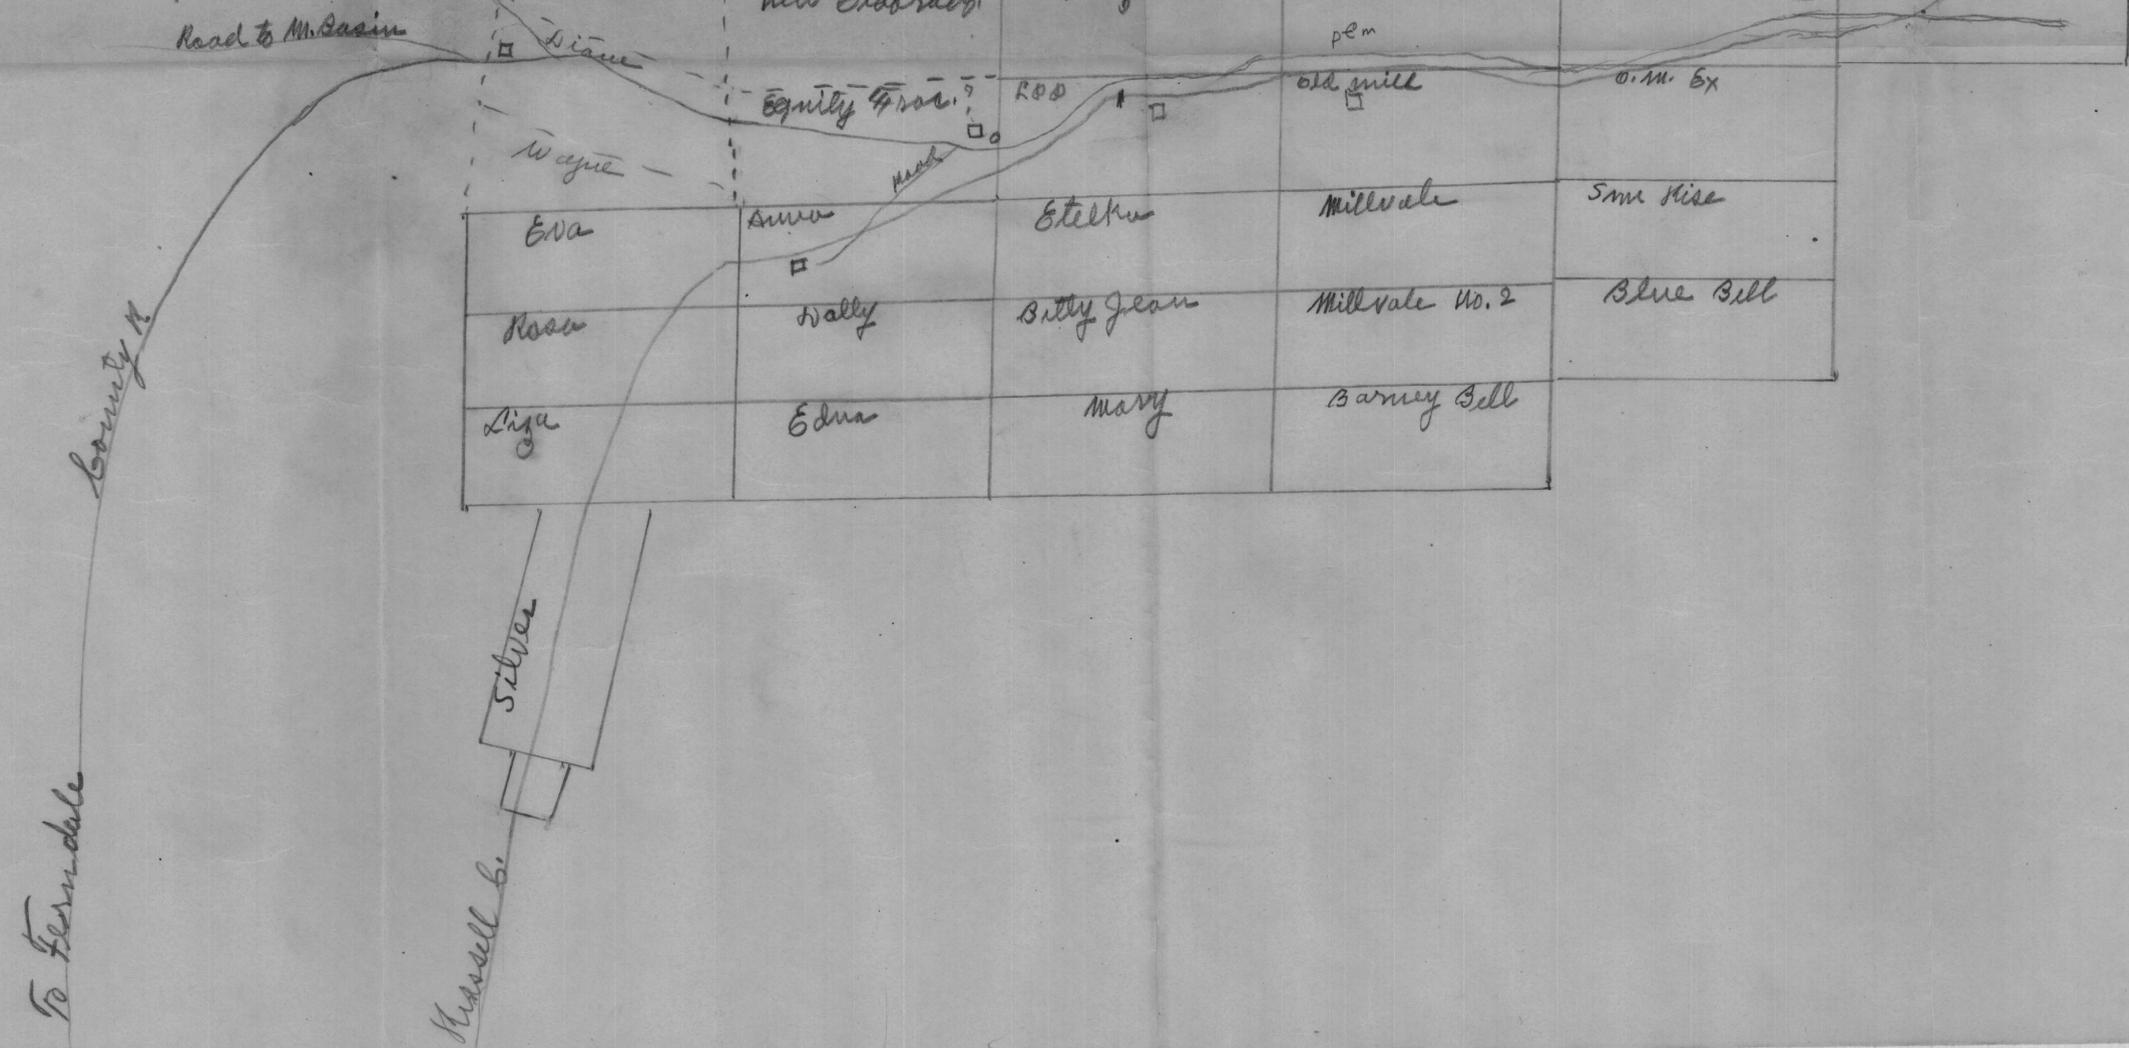 Road to M. Basin
Diane
plm
Equity Frac.
Old Mill
O.M. Ex
Wayne
Road
Eva
Anna
Etelka
Millvale
Sun Rise
Rosa
Dolly
Betty Jean
Millvale No. 2
Blue Bell
Liza
Edna
Mary
Barney Bell
County R
Silver
To Ferndale
Russell C.